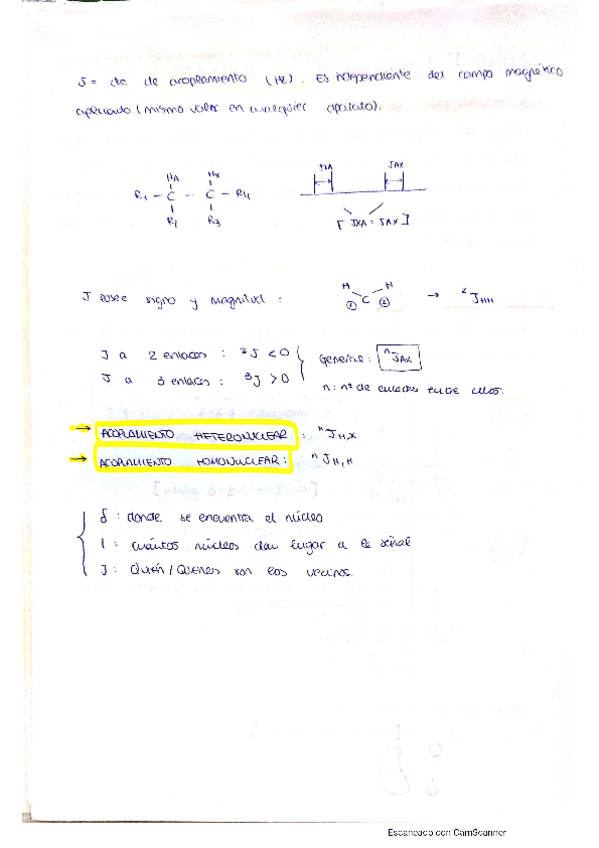 J = cte. de acoplamiento (Hz). Es independiente del campo magnético
aplicado (mismo valor en cualquier aparato).
HA Hx
R1 - C - C - R4
R2 R3
JXA JAX
[ JXA = JAX ]
J posee signo y magnitud :
H H
① C ② → ²JHH
J a 2 enlaces : ²J < 0
J a 3 enlaces : ³J > 0
General : ⁿJAX
n : nº de enlaces entre ellos.
→ ACOPLAMIENTO HETERONUCLEAR : ⁿJH,X
→ ACOPLAMIENTO HOMONUCLEAR : ⁿJH,H
δ : donde se encuentra el núcleo
I : cuántos núcleos dan lugar a la señal
J : Quién / Quienes son los vecinos.
Escaneado con CamScanner